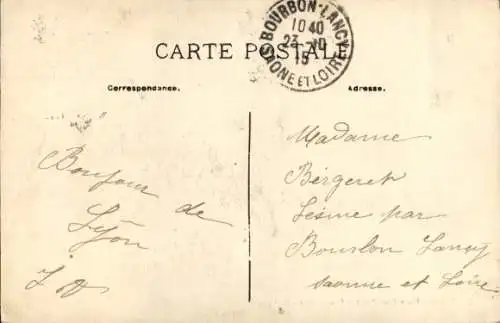 BOURBON-LANCY
10 40
23-10
15
SAONE ET LOIRE
CARTE POSTALE
Correspondance.
Adresse.
Bonjour
de
Lyon
Madame
Bergeret
Lesme par
Bourbon Lancy
saonne et Loire